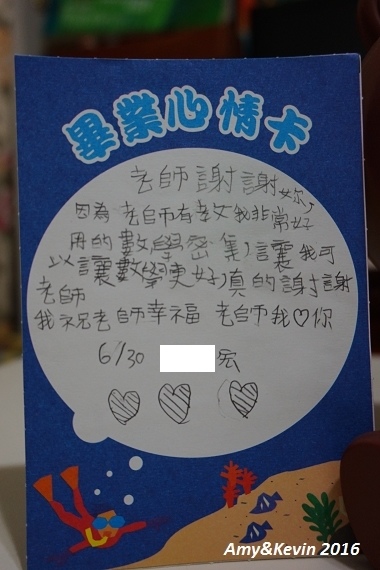 畢業心情卡
老師謝謝妳,
因為老師有教我非常好
用的數學密集,讓我可
以讓數學更好,真的謝謝
老師
我祝老師幸福 老師我♡你
6/30 宏
Amy&Kevin 2016